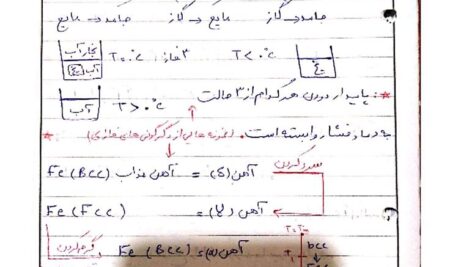 جامد ⇌ گاز   مایع ⇌ گاز   جامد ⇌ مایع
بخار آب
آب یخ   T=0°C   ۳ فاز:   T<0°C   یخ
آب   T>0°C
*: پایدار بودن هر کدام از ۳ حالت
به دما و فشار وابسته است. (نمونه هایی از دگرگونی های فازی) *
سرد کردن
Fe (Bcc) آهن مذاب = آهن (δ)
Fe (Fcc) = آهن (γ)
گرم کردن   Fe (Bcc) = آهن (α)   bcc